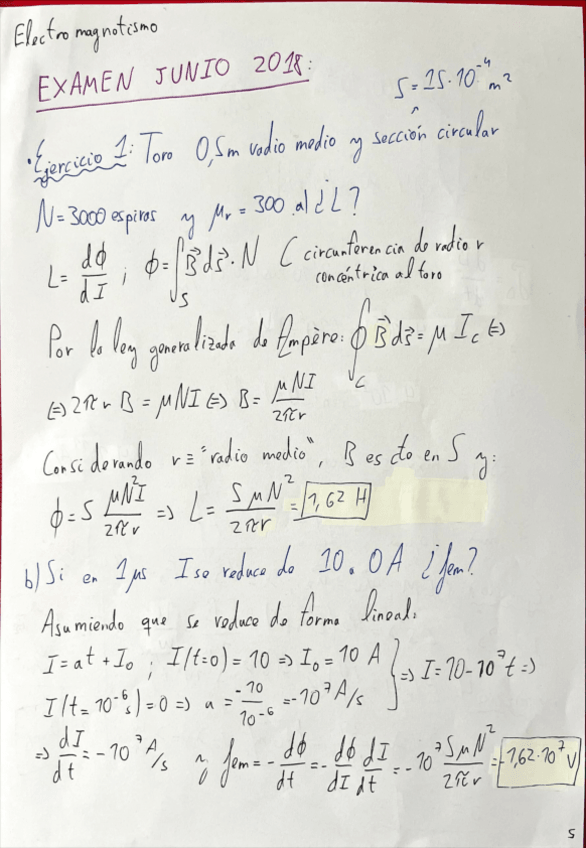 Electromagnetismo
EXAMEN JUNIO 2018:
S=15·10⁻⁴ m²
·Ejercicio 1: Toro 0,5m radio medio y sección circular
N=3000 espiras y μr=300 a) ¿L?
L= dϕ/dI ; ϕ=∫_S B⃗ds⃗·N C circunferencia de radio r concéntrica al toro
Por la ley generalizada de Ampère: ∮_C B⃗ds⃗=μ I_c ⇔
⇔ 2πr B = μNI ⇔ B= μNI/2πr
Considerando r≡"radio medio", B es cte en S y:
ϕ=S μN²I/2πr ⇒ L= SμN²/2πr = 1,62 H
b) Si en 1μs I se reduce de 10 a 0A ¿fem?
Asumiendo que se reduce de forma lineal:
I=at+I₀ ; I(t=0)=10 ⇒ I₀=10 A } ⇒ I=10-10⁷t ⇒
I(t=10⁻⁶s)=0 ⇒ a= -10/10⁻⁶ =-10⁷A/s
⇒ dI/dt=-10⁷A/s y fem=- dϕ/dt=- dϕ/dI dI/dt=-10⁷ SμN²/2πr =-1,62·10⁷V
5